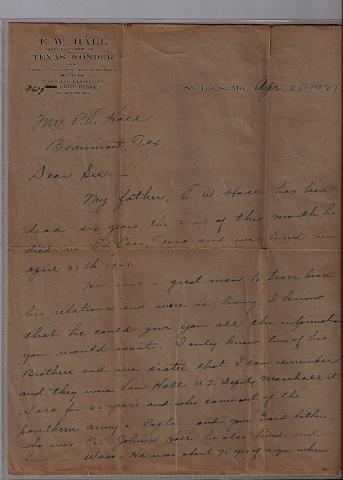 E. W. HALL
MANUFACTURER OF
TEXAS WONDER
FOR
KIDNEY, BLADDER AND RHEUMATIC
TROUBLES
OFFICE AND LABORATORY
OLIVE STREET
ST. LOUIS, MO.
St. Louis, Mo. Apr. 25 1927
Mr. P. V. Hall
Beaumont, Tex
Dear Sir:—
My father, E. W. Hall has been
dead six years the of this month, he
died in Texas and was buried
april 27th
He was a great man to trace back
his relations and were he living I know
that he could give you all the information
you would want. I only knew two of his
Brothers and one sister that I can remember
and they were Van Hall, U.S. Deputy Marshall at
Waco for 20 years and who came out of the
Southern army a Captain and your Grand father
who was Col. John Hall he also lived
Waco - He was about 75 yrs of age when